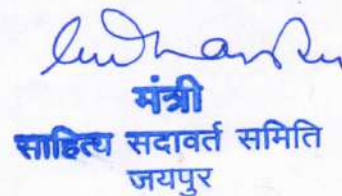 मंत्री
साहित्य सदावर्त समिति
जयपुर